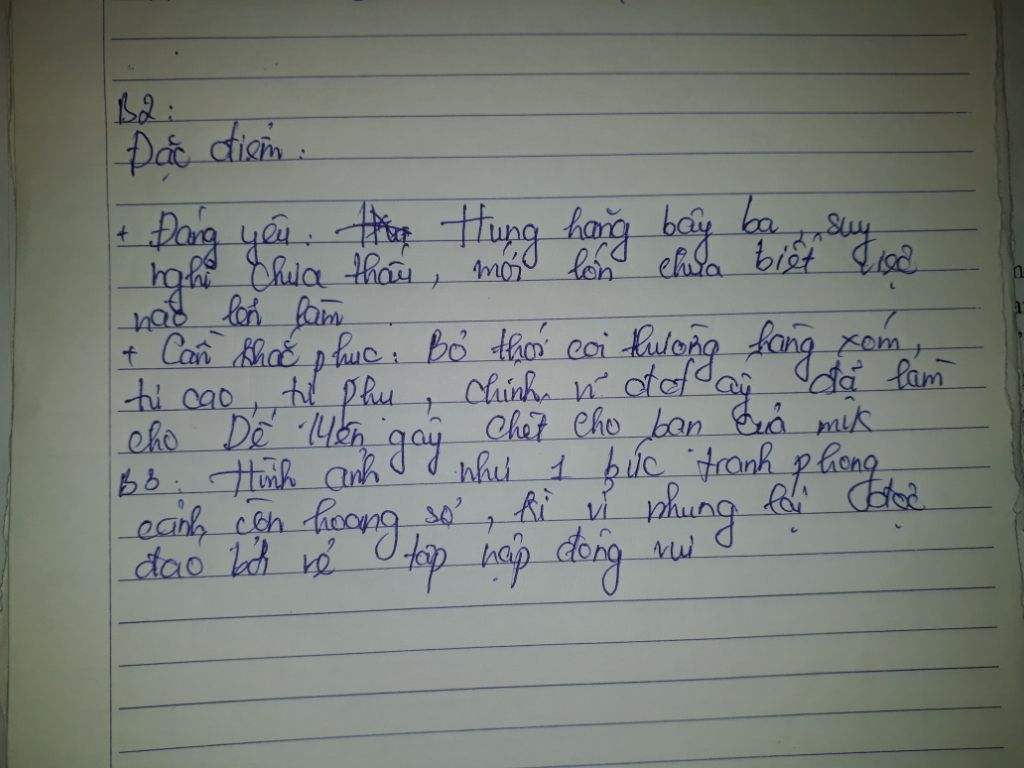 B2:
Đặc điểm:
+ Đáng yêu: Hung hăng bây ba, suy
nghĩ chưa thấu, mới lớn chưa biết
nào lớn lắm
+ Cần khắc phuc: Bỏ thói coi thường hàng xóm,
tự cao, tự phu, Chính vì đtđ ấy đã làm
cho Dế gây chết cho ban của mik
B3: Hình anh như 1 bức tranh phong
cảnh còn hoang sơ, kì vĩ nhung lại độc
đao bởi vẻ tâp nập đông vui